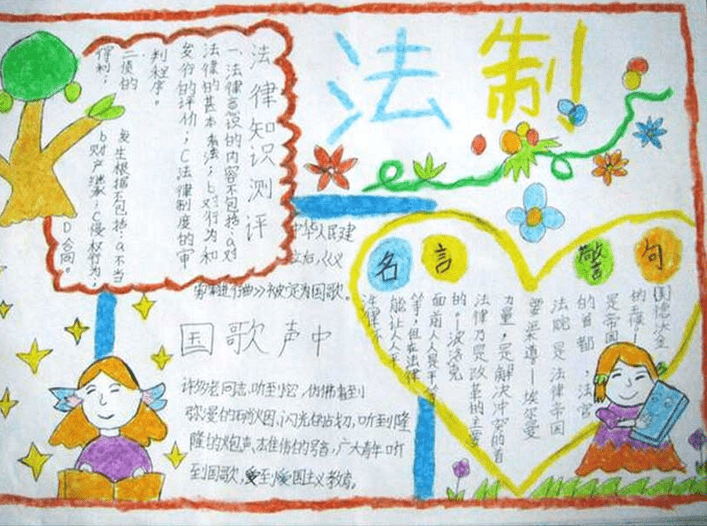 法制
法律知识测评
一、法律意识的内容不包括：a对
法律的基本看法；b对行为和
发行的评价；C法律制度的审
判程序。
二、债的
发生根据不包括：a不当
得利；
b财产继承；C侵权行为；
D合同。
中华人民建
立后，《义
勇军进行曲》被定为国歌。
国歌声中
许多老同志，听到它，仿佛看到
弥漫的硝烟，闪光的战刀，听到隆
隆的炮声，雄伟的号音，广大青年听
到国歌，受到爱国主义教育。
名言警句
法院是法律帝国
的首都，法官
是帝国
的王侯
要柔道——埃尔曼
力量，是解决冲突的首
法律乃是改革的主要
的。——波洛克
面前人人是平等
等，但在法律
能让人人平
法律不